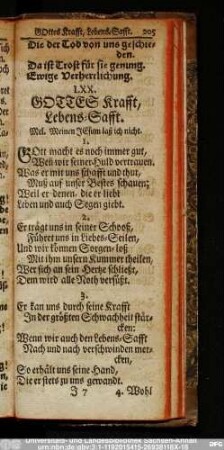 GOttes Krafft, Lebens-Safft. 205
Die der Tod von uns geschie-
den.
Da ist Trost für sie genung.
Ewige Verherrlichung.
LXX.
GOTTES Krafft,
Lebens-Safft.
Mel. Meinen JEsum laß ich nicht.
1.
GOtt macht es noch immer gut,
Weil wir seiner Huld vertrauen.
Was er mit uns schafft und thut,
Muß auf unser Bestes schauen;
Weil er denen, die er liebt
Leben und auch Segen giebt.
2.
Er trägt uns in seiner Schooß,
Führet uns in Liebes-Seilen,
Und wir können Sorgen-loß
Mit ihm unsern Kummer theilen.
Wer sich an sein Hertze schließt,
Dem wird alle Noth versüßt.
3.
Er kan uns durch seine Krafft
In der größten Schwachheit stär-
cken:
Wenn wir auch den Lebens-Safft
Nach und nach verschwinden mer-
cken,
So erhält uns seine Hand,
Die er stets zu uns gewandt.
J 7 4. Wohl
Universitäts- und Landesbibliothek Sachsen-Anhalt